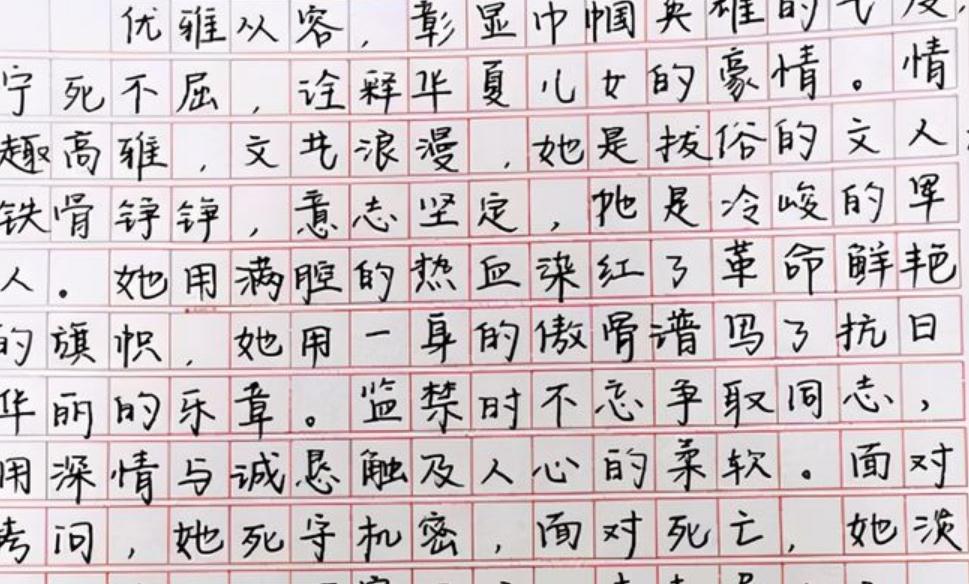 优雅从容，彰显巾帼英雄的气度，
宁死不屈，诠释华夏儿女的豪情。情
趣高雅，文艺浪漫，她是拔俗的文人；
铁骨铮铮，意志坚定，她是冷峻的军
人。她用满腔的热血染红了革命鲜艳
的旗帜，她用一身的傲骨谱写了抗日
华丽的乐章。监禁时不忘争取同志，
用深情与诚恳触及人心的柔软。面对
拷问，她死守机密，面对死亡，她淡